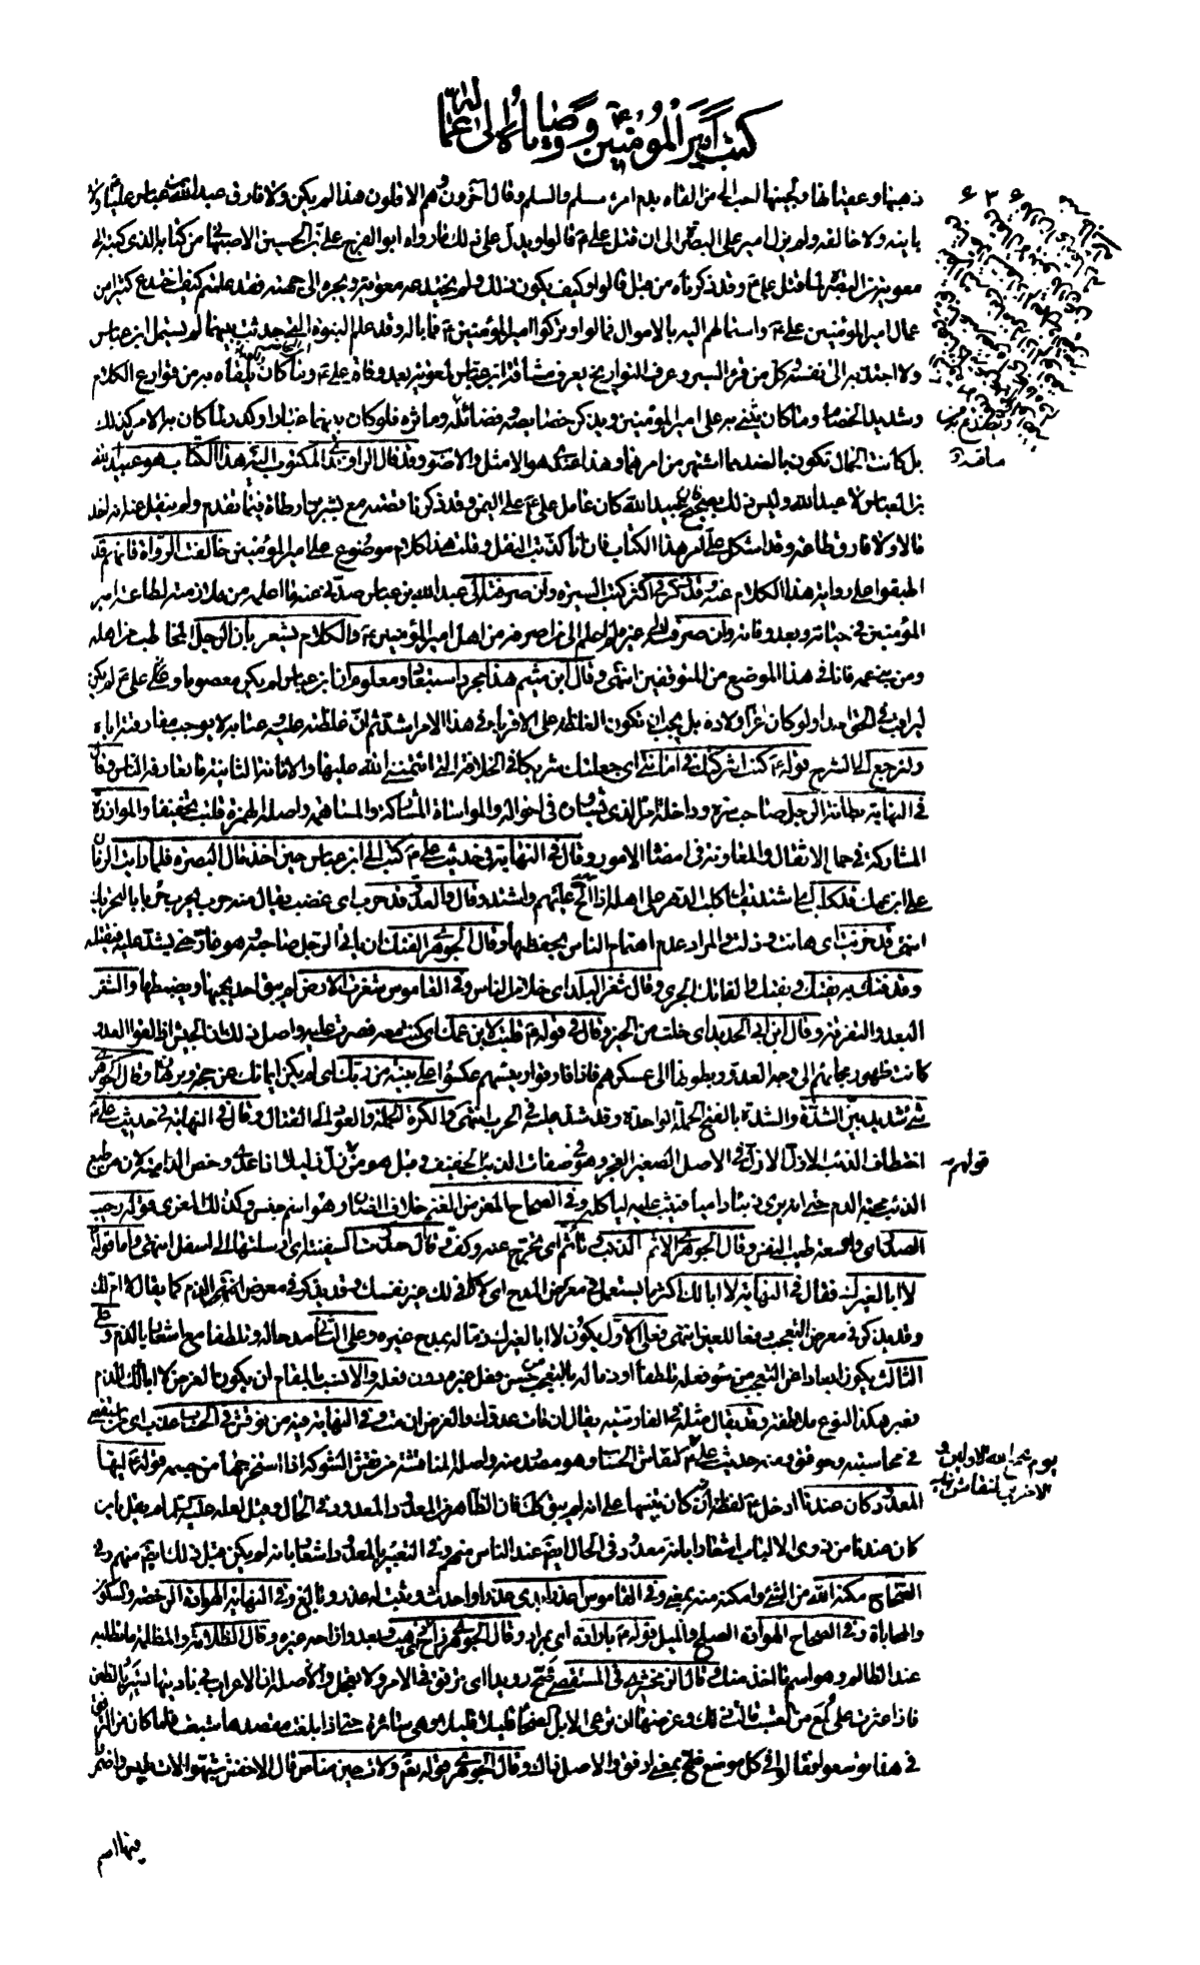 كتب أمير المؤمنين ع ووصاياه إلى عماله
ذهبها وعقيانها ولجينها لاحب الي من القاه بدم امرء مسلم والسلم وقال آخرون وهم الاقلون هذا لم يكن ولا فارق عبد الله بن عباس عليا ولا
باينه ولا خالفه ولم يزل اميرا على البصرة الى ان قتل علي ع قالوا ويدل على ذلك ما رواه ابو الفرج علي بن الحسين الاصبهاني من كتابه الذي كتبه الى
معوية من البصرة لما قتل علي ع وقد ذكرناه من قبل قالوا وكيف يكون ذلك ولم يخدعه معوية ويجره الى جهته فقد علمتم كيف اختدع كثيرا من
عمال امير المؤمنين علي ع واستمالهم اليه بالاموال فمالوا وتركوا امير المؤمنين ع فما باله وقد علم النبوة التي حدثت بينهما لم يستمل ابن عباس
ولا اجتذبه الى نفسه وكل من قرء السير وعرف التواريخ يعرف مشاقة ابن عباس لمعوية بعد وفاة علي ع وما كان يلقاه به من قوارع الكلام
وشديد الخصام وما كان يثني به على امير المؤمنين ويذكر خصايصه وفضائله وماثره فلو كان بينهما غبار او كدر لما كان الامر كذلك
بل كانت الحال تكون بالضد مما اشتهر من امرهما وهذا عندي هو الامثل والاصوب وقد قال الراوندي المكتوب اليه هذا الكتاب هو عبيد الله
بن العباس لا عبد الله وليس ذلك بصحيح فان عبيد الله كان عامل علي ع على اليمن وقد ذكرنا قصته مع بسر بن ارطاة فيما تقدم ولم ينقل عنه انه اخذ
مالا ولا فارق طاعة وقد اشكل علي امر هذا الكتاب فان انا كذبت النقل وقلت هذا كلام موضوع على امير المؤمنين خالفت الرواة فانهم قد
اطبقوا على رواية هذا الكلام عنه وقد ذكر في اكثر كتب السيرة وان صرفته الى عبد الله بن عباس صدني عنه ما اعلمه من ملازمته لطاعة امير
المؤمنين في حياته وبعد وفاته وان صرفته الى غيره لم اعلم الى من اصرفه من اهل امير المؤمنين ع والكلام يشعر بان الرجل المخاطب من اهله
ومن بني عمه فانا في هذا الموضع من المتوقفين انتهى وقال ابن ميثم هذا مجرد استبعاد ومعلوم ان ابن عباس لم يكن معصوما وعلي ع لم يكن
ليراقب في الحق احدا ولو كان اعز اولاده بل يجب ان تكون الغلظة على الاقرباء في هذا الامر اشد ثم ان غلظته عليه وعتابه لا يوجب مفارقته اياه
ولنرجع الى الشرح قوله ع كنت اشركتك في امانتي اي جعلتك شريكا في الخلافة التي ائتمنني الله عليها والامانة الثانية ما تعارفه الناس وقال
في النهاية بطانة الرجل صاحب سره وداخلة امره الذي يشاوره في احواله والمواساة المشاركة والمساهمة واصله الهمزة فقلبت تخفيفا والموازرة
المشاركة في حمل الاثقال والمعاونة في امضاء الامور وقال في النهاية في حديث علي ع كتب الى ابن عباس حين اخذ مال البصرة فلما رايت الزمان
على ابن عمك قد كلب اي اشتد يقال كلب الدهر على اهله اذا الح عليهم واشتد وقال والعدو قد حرب اي غضب يقال منه حرب يحرب حربا بالتحريك
انتهى قد خزيت اي هانت وذلت والمراد عدم اهتمام الناس بحفظها وقال الجوهري الفتك ان ياتي الرجل صاحبه وهو غار حتى يشد عليه فيقتله
وقد فتك به يفتك ويفتك والفاتك الجري وقال شغر البلد اي خلا من الناس وفي القاموس شغرت الارض لم يبق احد يحميها ويضبطها والشغر
البعد والتفرقة وقال ابن ابي الحديد اي خلت من الخير وقال في قوله ع قلبت لابن عمك اي كنت معه فصرت عليه واصل ذلك ان الجيش اذا لقوا العدو
كانت ظهور مجانهم الى وجه العدو وبطونها الى عسكرهم فاذا فارقوا رئيسهم عكسوا على بينة من ربك اي لم يكن ايمانك عن حجة وبرهان وقال الجوهري
شيء شديد بين الشدة والشدة بالفتح الحملة الواحدة وقد شد عليه في الحرب انتهى والكرة الحملة والعود الى القتال وقال في النهاية في حديث علي ع
اختطاف الذئب الازل الازل في الاصل الصغير العجز وهو في صفات الذئب الخفيف وقيل هو من زل زليلا اذا عدا وخص الدامية لان من طبع
الذئب محبة الدم حتى انه يرى ذئبا داميا فيثب عليه لياكله وفي الصحاح المعز من الغنم خلاف الضان وهو اسم جنس وكذلك المعزى قوله رحيب
الصدر اي واسعه طيب النفس وقال الجوهري الاثم الذنب تاثم اي تحرج عنه وكف وقال حدرت السفينة اي ارسلتها الى اسفل انتهى واما قوله
لا ابا لغيرك فقال في النهاية لا ابا لك اكثر ما يستعمل في معرض المدح اي لا كافي لك غير نفسك وقد يذكر في معرض الذم كما يقال لا ام لك
وقد يذكر في معرض التعجب ودفعا للعين انتهى فعلى الاول يكون لا ابا لغيرك ذما له بمدح غيره وعلى الثاني مدحا له وتلطفا مع اشعار بالذم وعلى
الثالث يكون ابعادا عن التعجب من سوء فعله تلطفا او ذما له بالتعجب من حسن فعل غيره دون فعله والانسب بالمقام ان يكون الغرض لا ابا لك للذم
فعبر هكذا لنوع ملاطفة وقد يقال مثله في الفارسية يقال ان مات عدوك والغرض ان مت وفي النهاية فيه من نوقش في الحساب عذب اي من استقصي
في محاسبته وحوقق ومنه حديث علي ع لنقاش الحساب وهو مصدر منه واصل المناقشة من نقش الشوكة اذا استخرجها من جسمه قوله ع ايها
المعدود كان عندنا ادخل ع لفظة كان تنبيها على انه لم يبق كذلك فان الظاهر من المعدود المعدود في الحال وقيل لعله ع لم يقل يا من
كان عندنا من ذوي الالباب اشعارا بانه معدود في الحال ايضا عند الناس منهم وفي التعبير بالمعدود اشعار بانه لم يكن قبل ذلك ايضا منهم وفي
الصحاح مكنه الله من الشيء وامكنه منه بمعنى وفي القاموس اعذر ابدى عذرا واحدث وثبت له عذر وبالغ وفي النهاية الهوادة الرخصة والسكون
والمحاباة وفي الصحاح الهوادة الصلح والميل قوله ع بارادة اي بمراد وقال الجوهري زاح الشيء بعد وازاحه غيره وقال الظلامة والمظلمة ما تطلبه
عند الظالم وهو اسم ما اخذ منك وقال الزمخشري في المستقصى ضح رويدا اي ترفق في الامر ولا تعجل والاصله ان الاعراب في باديتها تسير بالظعن
فاذا عثرت على لمع من العشب قالت ذلك وغرضها ان ترعى الابل الضحاء قليلا قليلا وهي سائرة حتى اذا بلغت مقصدها شبعت فلما كان من الترفق
في هذا توسعوا فقالوا في كل موضع ضح بمعنى ارفق والاصل ذاك وقال الجوهري قوله تعالى ولات حين مناص قال الاخفش شبهوا لات بليس واضمروا
قولهم
يوم يجمع الله الاولين و
الاخرين لنقاش
فيها اسم